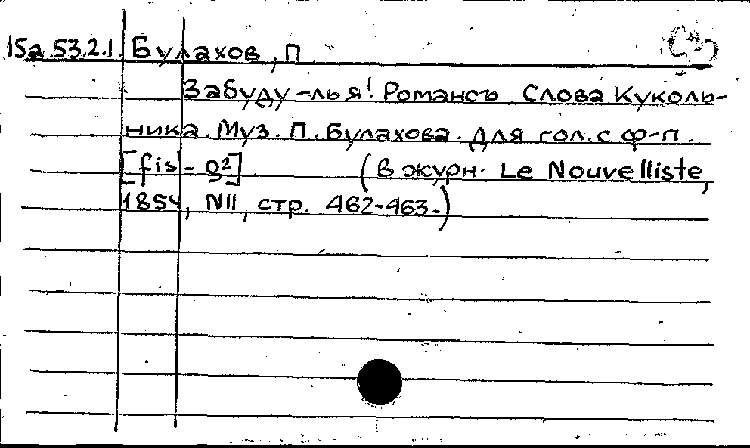 15a 53.2.1. Булахов, П
Забуду-ль я! Романсъ Слова Куколь-
ника. Муз. П. Булахова. Для гол. с ф-п.
[fis - g²] (В журн. Le Nouvelliste,
1854, N11, стр. 462-463.)